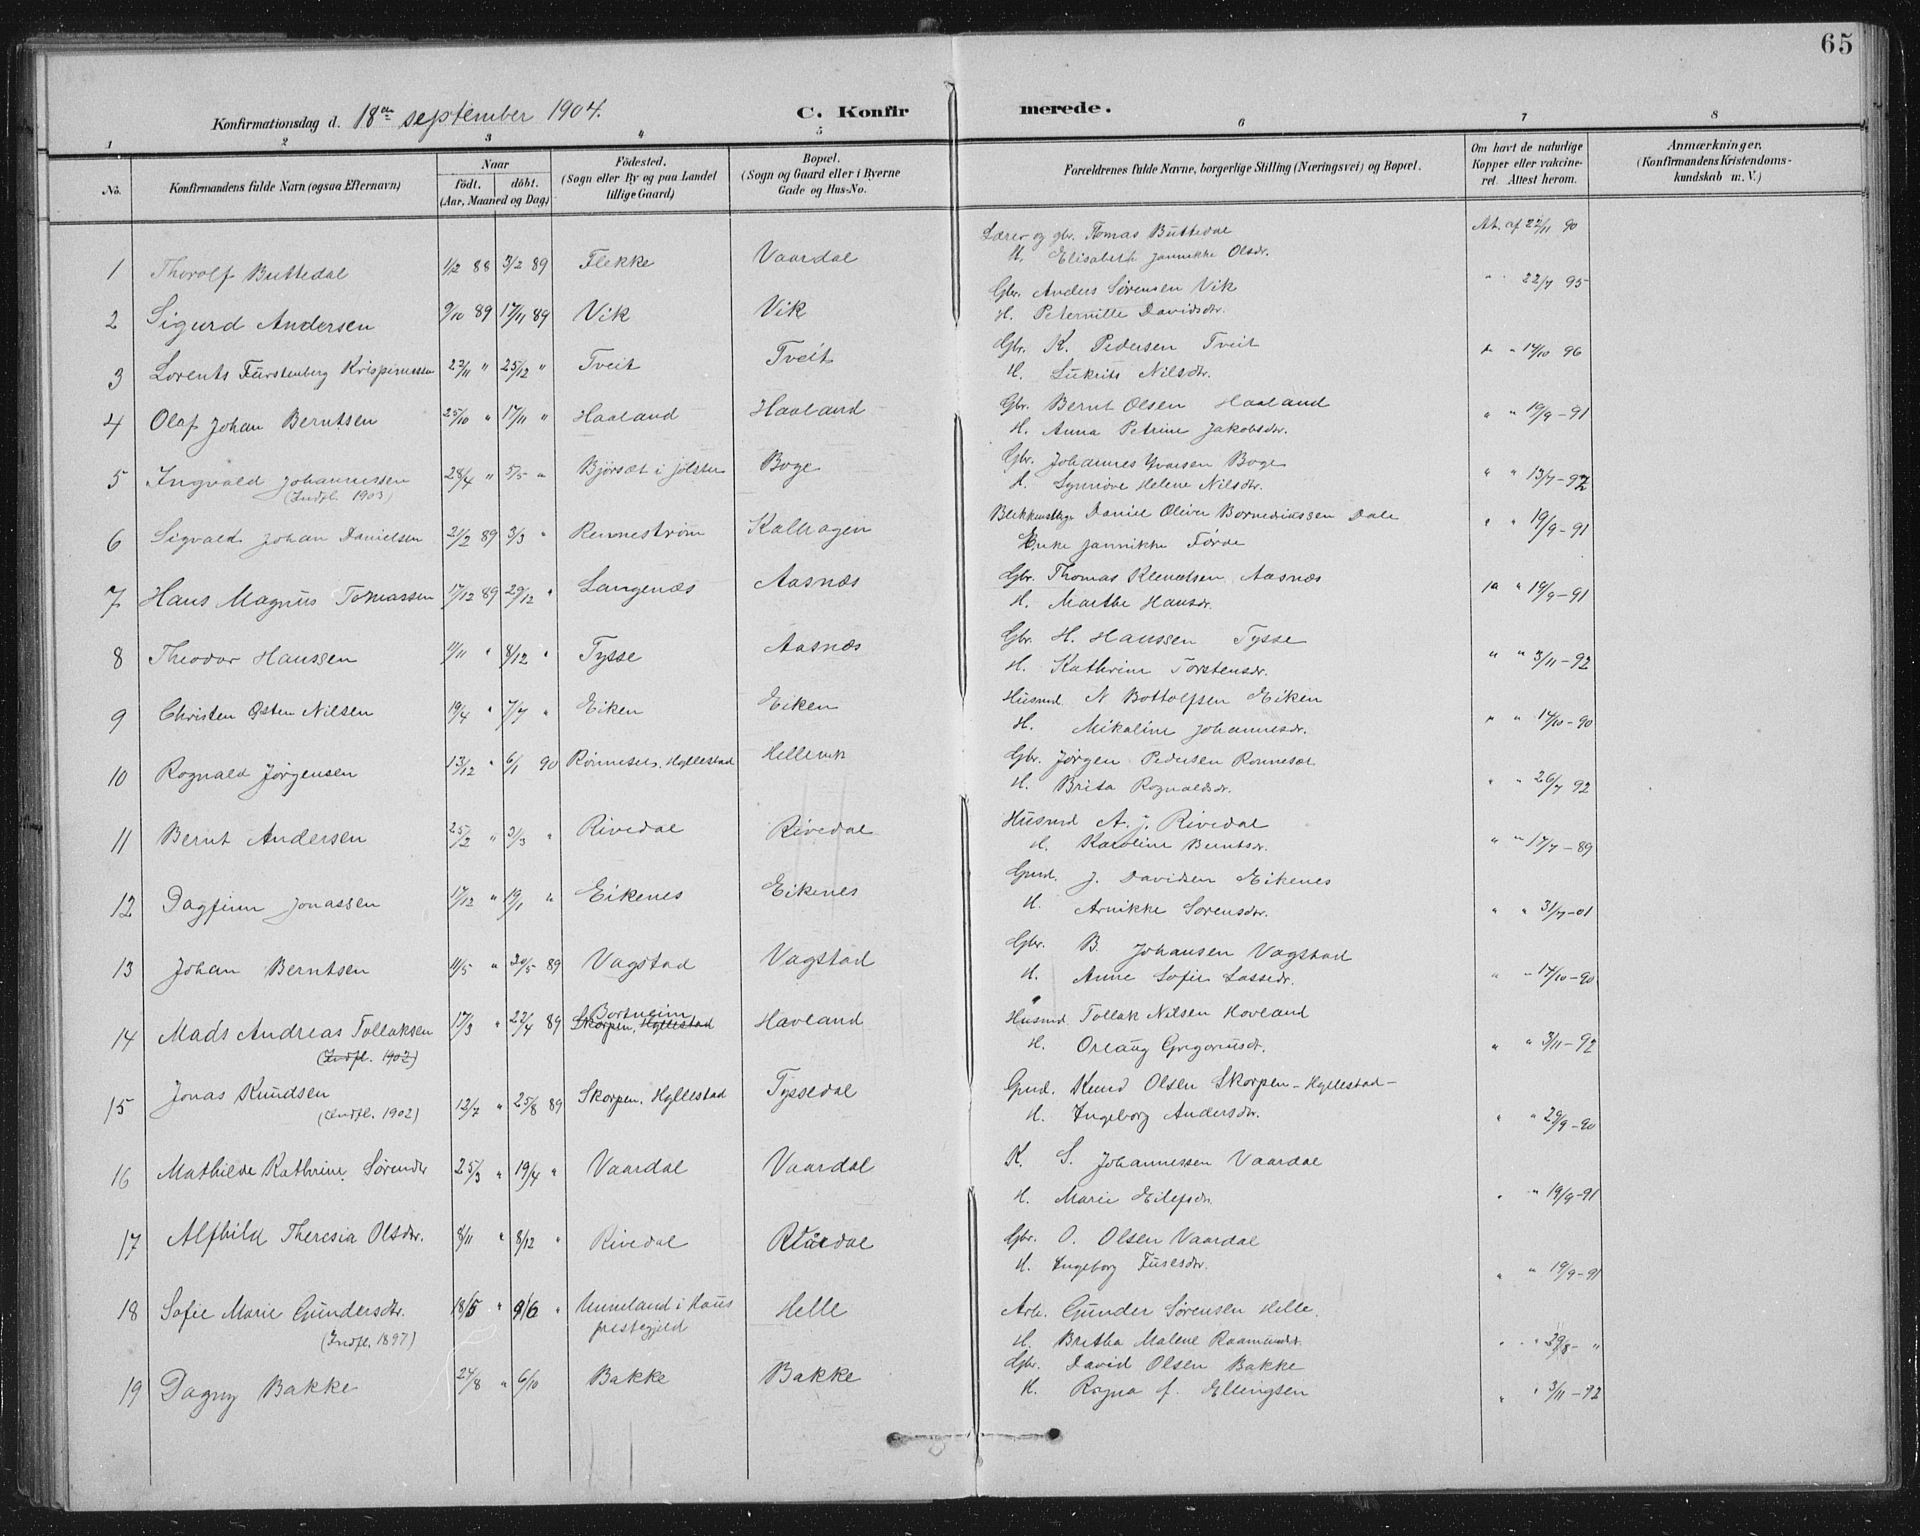 65
Konfirmationsdag d. 18de september 1904. C. Konfirmerede.
1 2 3 4 5 6 7 8
No. Konfirmandens fulde Navn (ogsaa Efternavn) Naar født. døbt. (Aar, Maaned og Dag) Fødested. (Sogn eller By og paa Landet tillige Gaard) Bopæl. (Sogn og Gaard eller i Byerne Gade og Hus-No. Forældrenes fulde Navne, borgerlige Stilling (Næringsvei) og Bopæl. Om havt de naturlige Kopper eller vakcineret. Attest herom. Anmærkninger. (Konfirmandens Kristendomskundskab m. V.)
1 Thorolf Buttedal 1/12 88 3/2 89 Flekke Vaardal Lærer og gbr. Tomas Buttedal At. af 22/11 90
H. Elisabeth Jannikke Olsdr.
2 Sigurd Andersen 9/10 89 17/11 89 Vik Vik Gbr. Anders Sørensen Vik " 22/7 95
H. Peternille Davidsdr.
3 Lorents Furstenberg Krispinussen 22/11 " 25/12 " Tveit Tveit Gbr. K. Pedersen Tveit " " 14/10 96
H. Lukrits Nilsdr.
4 Olaf Johan Berntsen 25/10 " 17/11 " Haaland Haaland Gbr. Bernt Olsen Haaland " " 19/9-91
H. Anna Petrine Jakobsdr.
5 Ingvald Johannessen 28/4 " 5/5 " Bjørsæt i Jølster Boge Gbr. Johannes Yvarsen Boge " " 13/7-92
(Indfl. 1903) H. Synnøve Helene Nilsdtr.
6 Sigvald Johan Danielsen 21/2 89 3/3 " Rennestrøm Kalhagen Blikkenslagr Daniel Oliver Dale " " 19/9-91
Enke Jannikke Førde
7 Hans Magnus Tomassen 17/12 89 29/12 " Langenæs Aasnæs Gbr. Thomas Klemetsen Aasnæs " 19/9-91
H. Marthe Hansdr.
8 Theodor Hanssen 11/11 " 8/12 " Tysse Aasnæs Gbr. H. Hanssen Tysse " " 3/11-92
H. Kathrine Torstensdr.
9 Christen Østen Nilsen 19/4 " 7/7 " Eiken Eiken Husmd. N Bottolfsen Eiken " " 14/10-90
H. Mikaline Johannesdr.
10 Rognald Jørgensen 13/12 " 6/1 90 Rønneset, Hyllestad Hellevik Gbr. Jørgen Pedersen Rønneset " " 26/7 92
H. Brita Rognaldsdr.
11 Bernt Andersen 25/2 " 3/3 " Rivedal Rivedal Husmd A. J. Rivedal " " 17/7-89
H. Karoline Berntsdr.
12 Dagfinn Jonassen 17/12 " 19/1 " Eikenes Eikenes Gmd. J. Davidsen Eikenes " " 31/7-01
H. Arnikke Sørensdr.
13 Johan Berntsen 11/5 " 30/5 89 Vagstad Vagstad Gbr. B. Johansen Vagstad " " 14/10-90
H. Anne Sofie Lassedr.
14 Mads Andreas Tollaksen 17/3 " 22/4 89 Bortneim Skorpen, Hyllestad Havland Husmd Tollak Nilsen Hovland " " 3/11-92
(Indfl. 1902) H. Orlaug Gregoriusdr.
15 Jonas Knudsen 12/7 " 25/8 89 Skorpen, Hyllestad Tyssedal Gmd. Knud Olsen Skorpen-Hyllestad- " " 29/9-90
(Indfl. 1902) H. Ingeborg Andersdr.
16 Mathilde Kathrine Sørensdr 25/3 " 19/4 " Vaardal Vaardal K. S. Johannessen Vaardal " " 19/9-91
H. Marie Eilefsdr.
17 Alfhild Theresia Olsdr. 8/11 " 8/12 " Rivedal Gbr. O. Olsen Vaardal " " 19/9-91
H. Ingeborg Fusesdr.
18 Sofie Marie Gundersdtr. 18/5 " 9/6 " Unneland i Haus præstegjeld Helle Arb. Gunder Sørensen Helle. " " 29/8- "
(Indfl. 1897) H. Britha Malene Raamundsdr.
19 Dagny Bakke 24/8 " 6/10 Bakke Bakke Gbr. David Olsen Bakke " " 3/11-92
H. Ragna f. Ellingsen